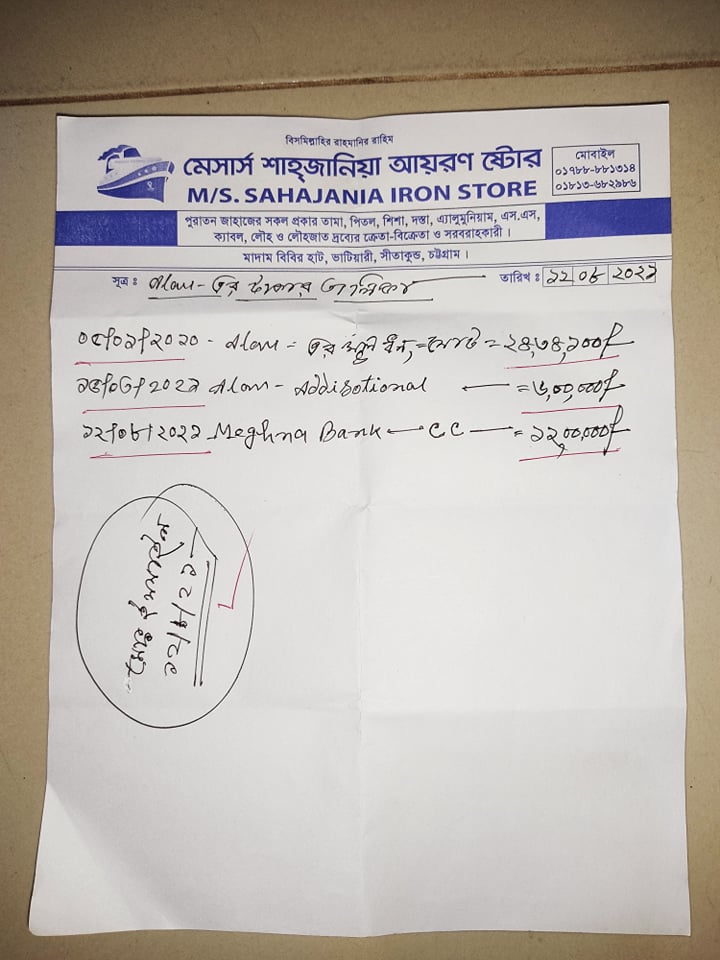 বিসমিল্লাহির রাহমানির রাহিম
মেসার্স শাহ্জানিয়া আয়রণ ষ্টোর
M/S. SAHAJANIA IRON STORE
মোবাইল
০১৭৮৮-৮৮১৩১৪
০১৮১৩-৬৮২৯৮৬
পুরাতন জাহাজের সকল প্রকার তামা, পিতল, শিশা, দস্তা, এ্যালুমুনিয়াম, এস.এস,
ক্যাবল, লৌহ ও লৌহজাত দ্রব্যের ক্রেতা-বিক্রেতা ও সরবরাহকারী ।
মাদাম বিবির হাট, ভাটিয়ারী, সীতাকুন্ড, চট্টগ্রাম ।
সূত্র ঃ Alam - এর টাকার তালিকা
তারিখ ঃ ১২ ০৮ ২০২১
২০২০ - Alam = এর মোট = ২৪,৩৪,১০০/
২০২১ Alam - Addisotional = ৬,০০,০০০/
১২/০৮/২০২১ Meghna Bank - CC = ১২,০০,০০০/